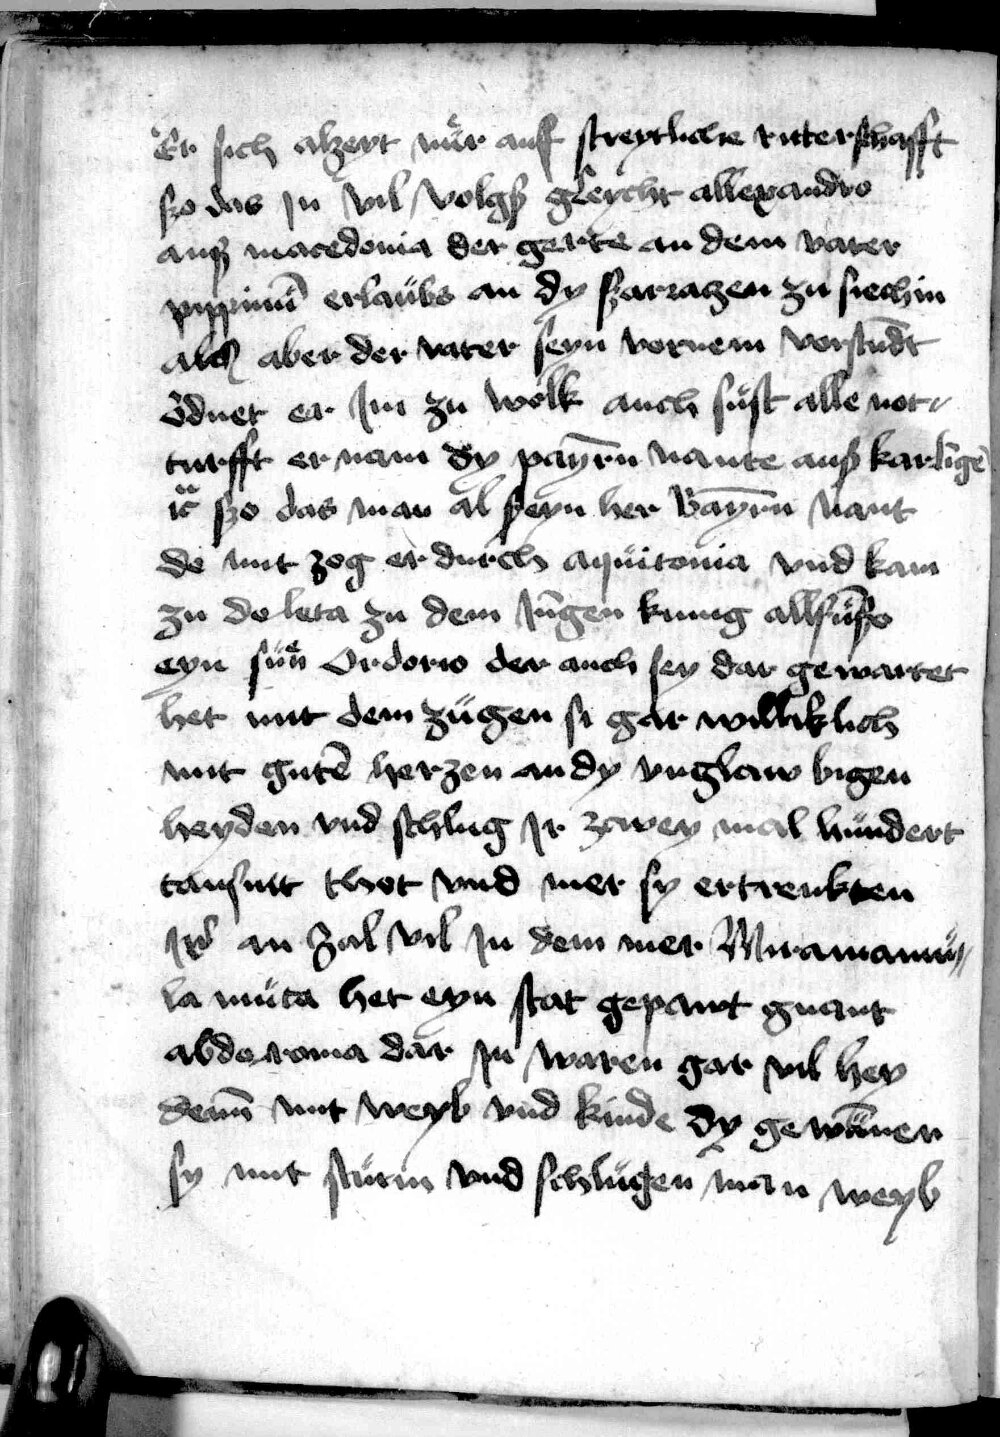 Er sich alzeyt nuͤr auf streytliche ritterschafft
szo das in vil volgß gleycht allexandro
auß macedonia der gerte an dem vater
pippinū erlaübs an dy szarratzen zu siechin
als aber der vater seyn vornem vorstūdt
ödnet er Im zu wolk auch suͤst alle not⸗
turfft er nam dy payr̄n nante auß karlīgē
ic̈ szo das man al seyn her Bayr̄n nant
do mit zog er durch aquitonia vnd kam
zu doleta zu dem Jūgen kunig allfuͤßo
eyn suͤn Ordorio der auch sey dar gewartet
het mit dem zügen si gar williklich
mit gutē herzen an dy vnglaw bigen
heyden vnd schlug Ir zwey mal hündert
tausntt thot vnd mer sy ertrenkten
Ir an zal vil In dem mer Miramamü⸗
la müta het eyn stat gepawt gnant
abderoma dar in waren gar vil hey
denn̄ mit weyb vnd kinde dy gewūnen
sy mit stürm vnd schlügen man weyb